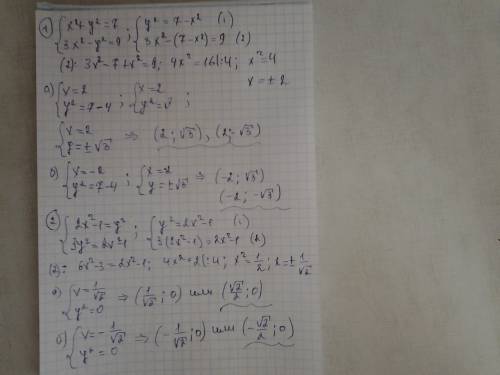 ① { x²+y²=7 ; 3x²-y²=9 ; { y²=7-x² (1) ; 3x²-(7-x²)=9 (2)
(2): 3x²-7+x²=9; 4x²=16|:4; x²=4
x=±2
а) { x=2 ; y²=7-4 ; { x=2 ; y²=3 ;
{ x=2 ; y=±√3 ⇒ (2;√3), (2;-√3)
б) { x=-2 ; y²=7-4 ; { x=-2 ; y=±√3 ⇒ (-2;√3)
(-2;-√3)
② { 2x²-1=y² ; 3y²=2x²-1 ; { y²=2x²-1 (1) ; 3(2x²-1)=2x²-1 (2)
(2): 6x²-3=2x²-1; 4x²=2|:4; x²=1/2; x=±1/√2
а) { x=1/√2 ; y²=0 ⇒ (1/√2;0) или (√2/2;0)
б) { x=-1/√2 ; y²=0 ⇒ (-1/√2;0) или (-√2/2;0)